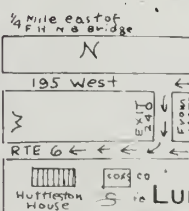 ¼ Mile east of
F H N B Bridge
N
195 West
EXIT
240
From
W
RTE 6
Huttleston
House
CORS CO
S
LU